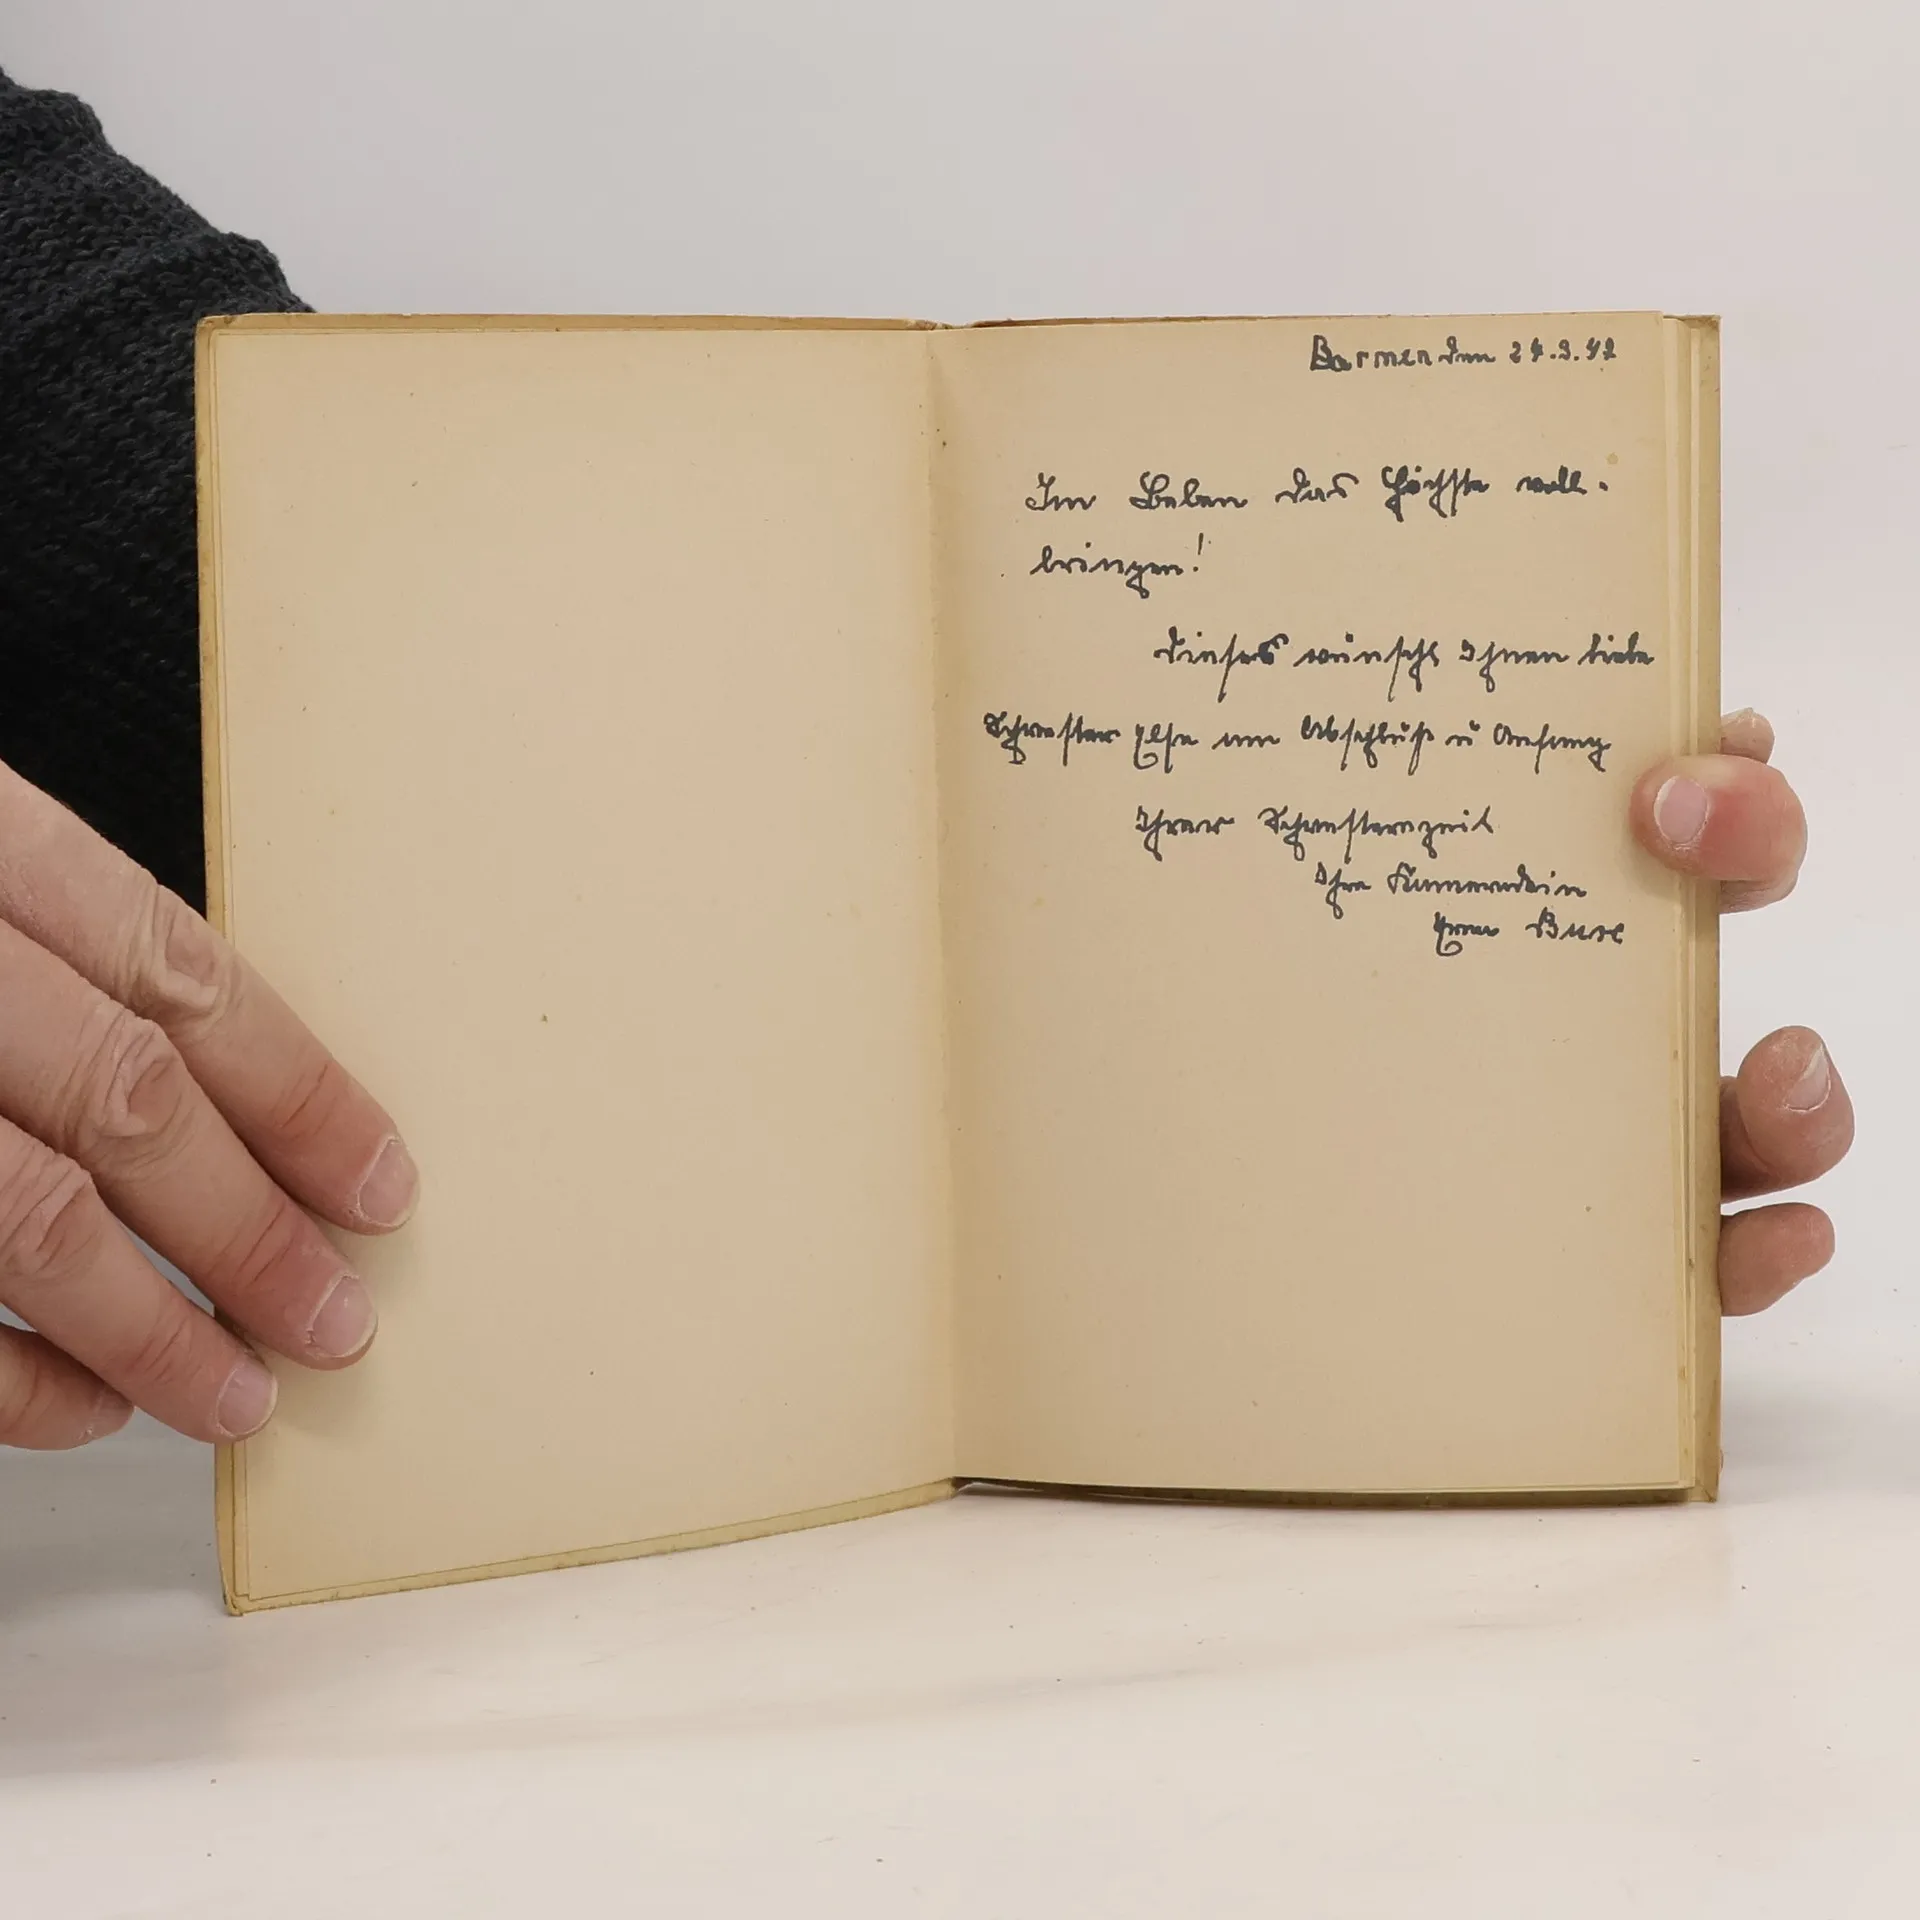 Barmen den 24.9.42
Im Leben das Höchste voll-
bringen!
Dieses wünscht Ihnen liebe
Schwester Else am Abschluß u Anfang
Ihrer Schwesternzeit
Ihre Kameradin
Erna